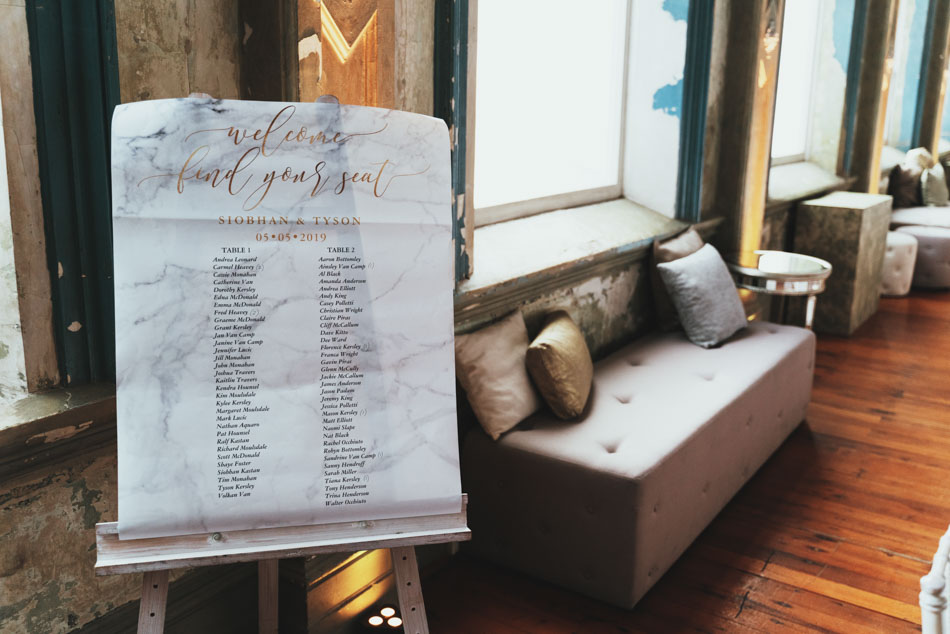 welcome
find your seat
SIOBHAN & TYSON
05•05•2019
TABLE 1
Andrea Leonard
Carmel Heavey
Cassie Monahan
Catherine Van
Dorothy Kersley
Edna McDonald
Emma McDonald
Fred Heavey
Graeme McDonald
Grant Kersley
Jan Van Camp
Janine Van Camp
Jennifer Lucic
Jill Monahan
John Monahan
Joshua Travers
Kaitlin Travers
Kendra Hounsel
Kim Moulsdale
Kylee Kersley
Margaret Moulsdale
Mark Lucic
Nathan Aquaro
Pat Hounsel
Ralf Kastan
Richard Moulsdale
Scott McDonald
Shaye Foster
Siobhan Kastan
Tim Monahan
Tyson Kersley
Vulkan Van
TABLE 2
Aaron Bottomley
Ainsley Van Camp
Al Black
Amanda Anderson
Andrea Elliott
Andy King
Casey Polletti
Christian Wright
Claire Piras
Cliff McCallum
Dave Kitto
Dee Ward
Florence Kersley
Franca Wright
Gavin Piras
Glenn McCully
Jackie McCallum
James Anderson
Jason Padam
Jeremy King
Jessica Polletti
Mason Kersley
Matt Elliott
Naomi Slape
Nat Black
Rachel Occhiuto
Robyn Bottomley
Sandrine Van Camp
Sanny Hendroff
Sarah Miller
Tiana Kersley
Tony Henderson
Trina Henderson
Walter Occhiuto